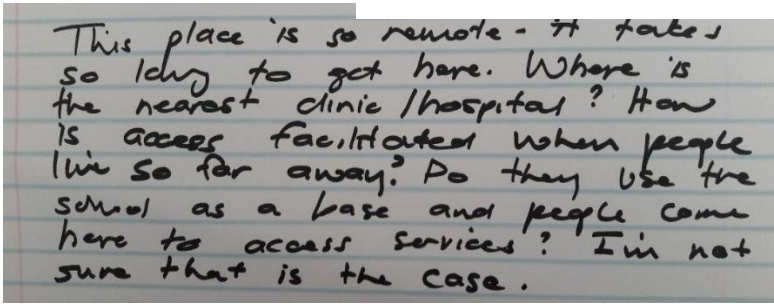 This place is so remote - it takes
so long to get here. Where is
the nearest clinic / hospital? How
is access facilitated when people
live so far away? Do they use the
school as a base and people come
here to access services? I'm not
sure that is the case.